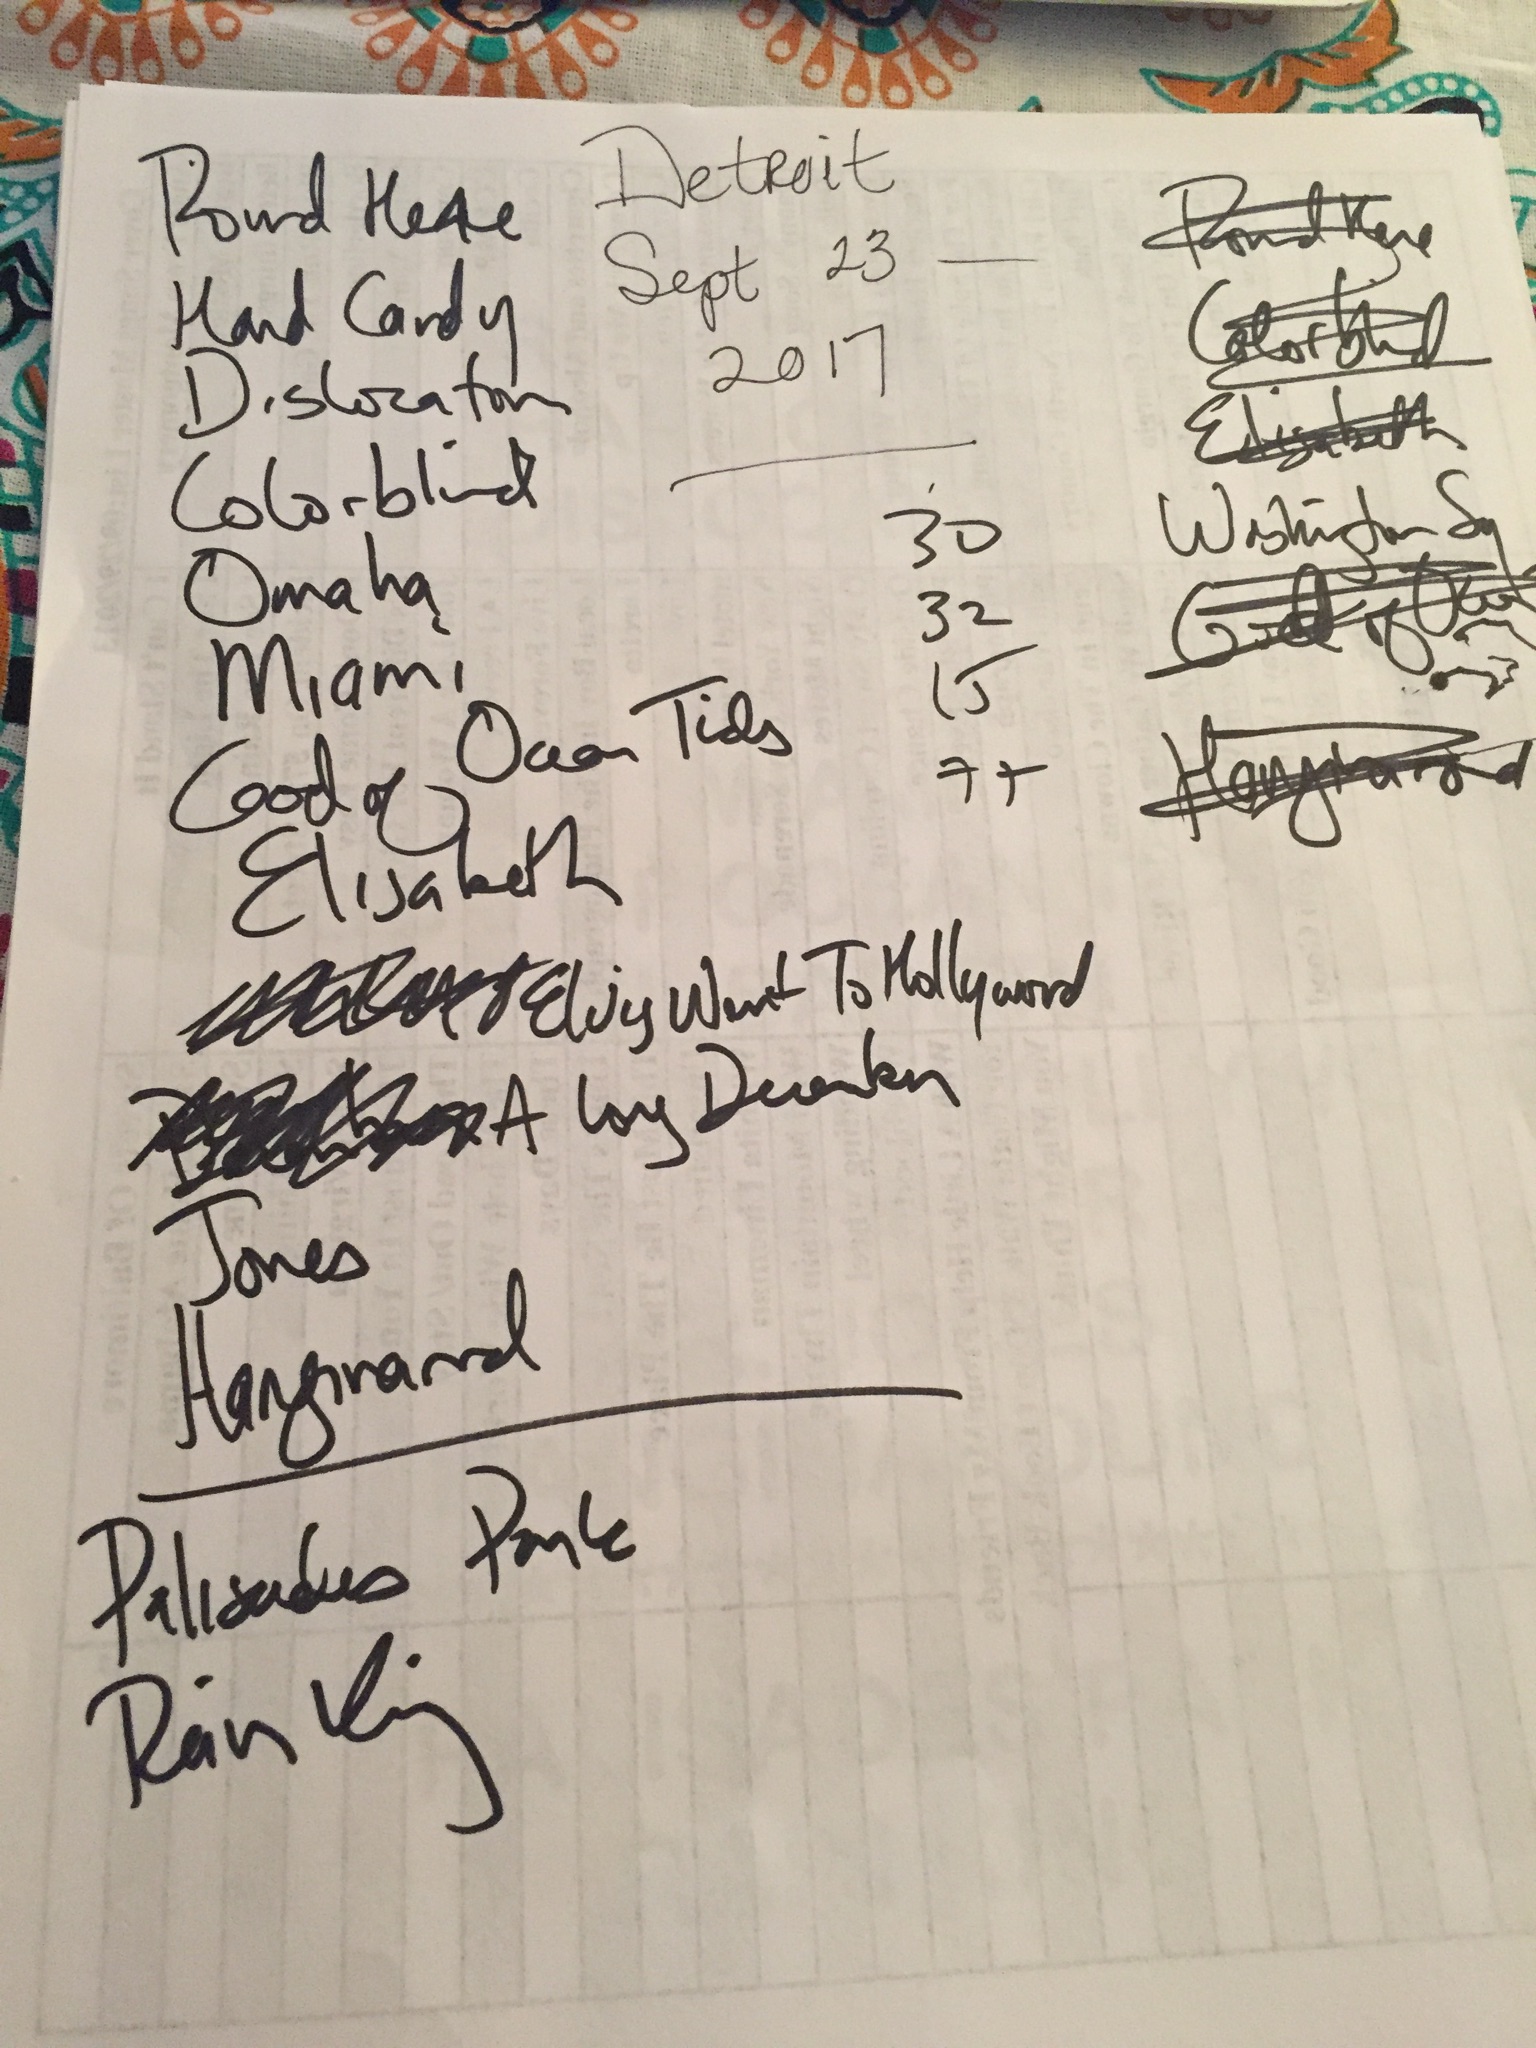 Round Here
Hard Candy
Dislocation
Colorblind
Omaha
Miami
God of Ocean Tides
Elisabeth
Elvis Went To Hollywood
A Long December
Jones
Hanginaround
Palisades Park
Rain King
Detroit
Sept 23 —
2017
30
32
15
77
Round Here
Colorblind
Elisabeth
Washington Sq
God of Ocean
Hanginaround